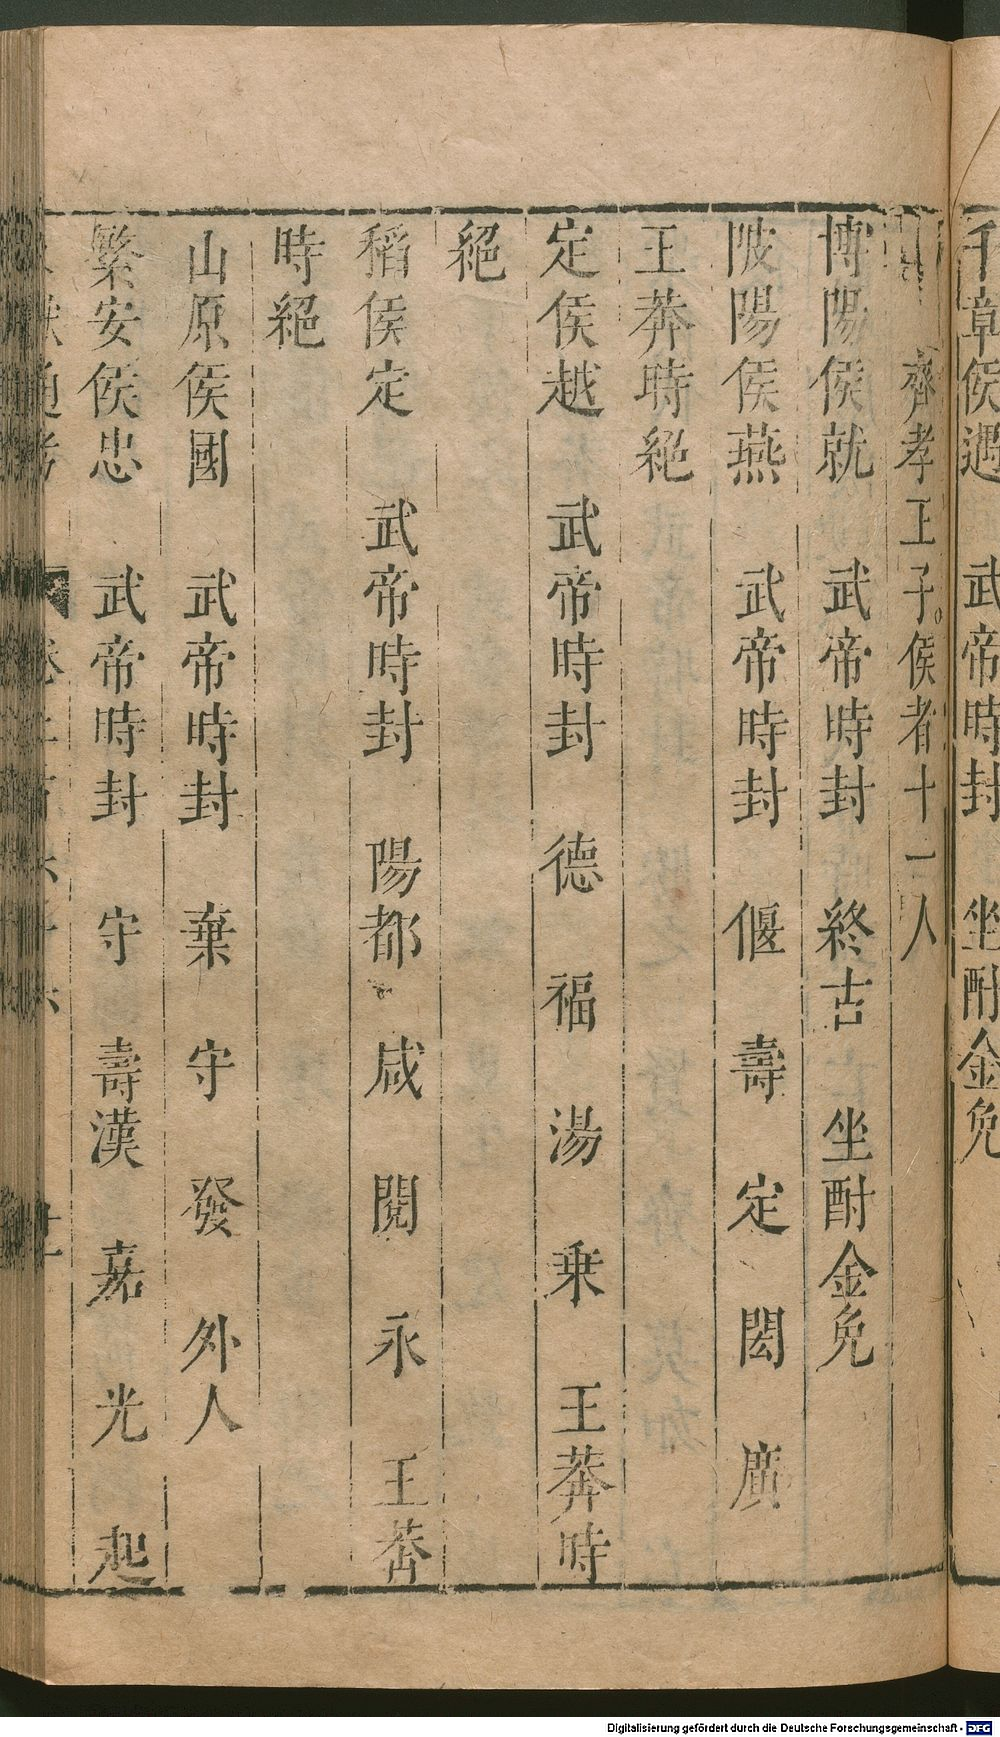 千章侯遇　武帝時封　坐酎金免
齊孝王子侯者十一人
博陽侯就　武帝時封　終古　坐酎金免
陂陽侯燕　武帝時封　偃　壽　定　閎　廣
王莽時絕
定侯越　武帝時封　德　福　湯　乗　王莽時
絕
稻侯定　武帝時封　陽都　咸　閱　永　王莽
時絕
山原侯國　武帝時封　棄　守　發　外人
繁安侯忠　武帝時封　守　壽漢　嘉　光　起
Digitalisierung gefördert durch die Deutsche Forschungsgemeinschaft - DFG